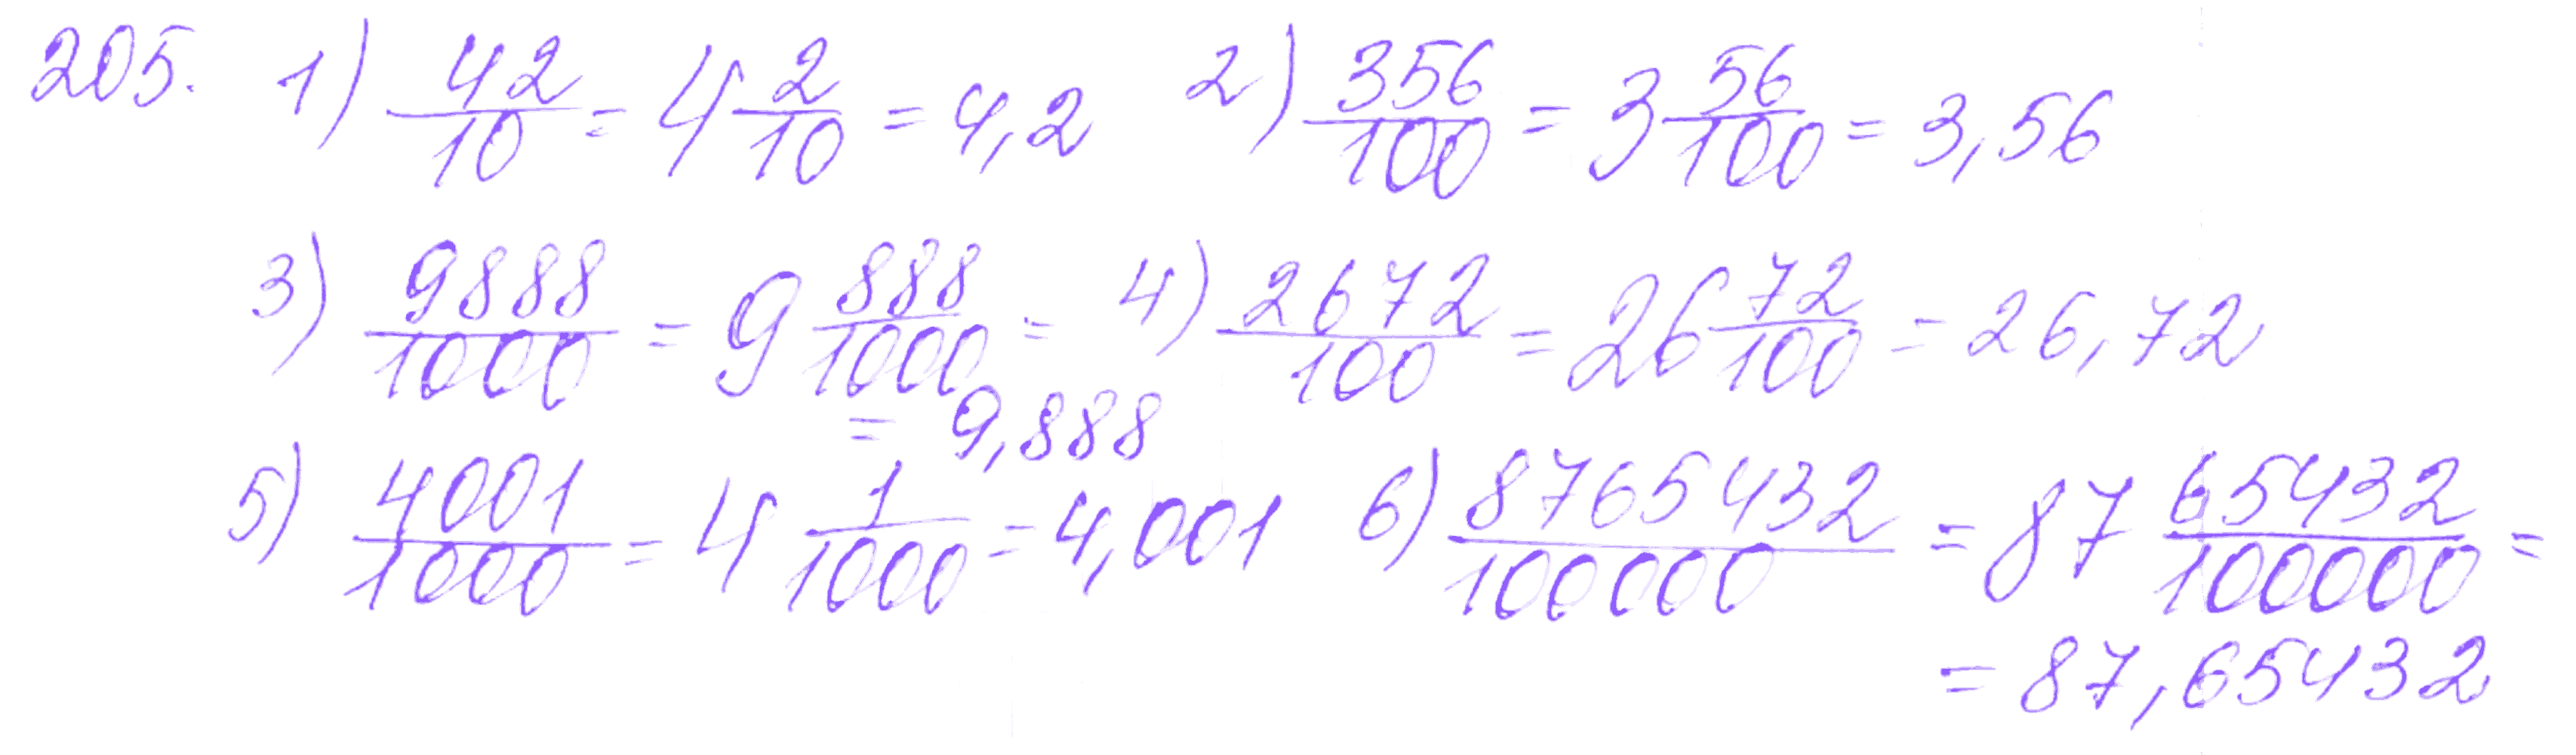 205. 1) 42/10 = 4 2/10 = 4,2 2) 356/100 = 3 56/100 = 3,56
3) 9888/1000 = 9 888/1000 = 4) 2672/100 = 26 72/100 = 26,72
= 9,888
5) 4001/1000 = 4 1/1000 = 4,001 6) 8765432/100000 = 87 65432/100000 =
= 87,65432